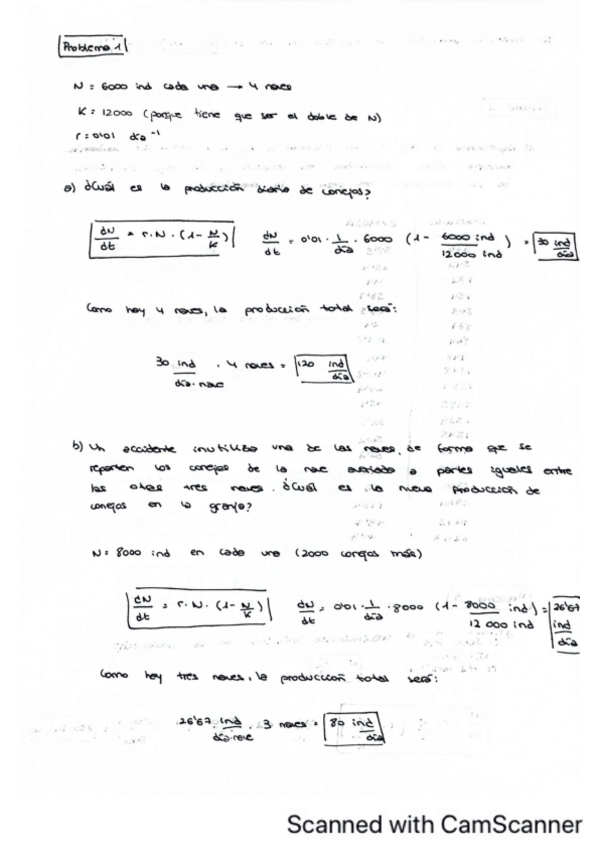 Problema 1
N = 6000 ind cada una → 4 naves
K = 12000 (porque tiene que ser el doble de N)
r = 0'01 día⁻¹
a) ¿Cuál es la producción diaria de conejos?
dN/dt = r.N.(1-N/K)    dN/dt = 0'01 · 1/día · 6000 (1 - 6000 ind/12000 ind) = 30 ind/día
Como hay 4 naves, la producción total será:
30 ind/día·nave · 4 naves = 120 ind/día
b) Un accidente inutilizó una de las naves, de forma que se
reparten los conejos de la nave averiada a partes iguales entre
las otras tres naves. ¿Cuál es la nueva producción de
conejos en la granja?
N = 8000 ind en cada una (2000 conejos más)
dN/dt = r.N.(1-N/K)    dN/dt = 0'01 · 1/día · 8000 (1 - 8000 ind/12 000 ind) = 26'67 ind/día
Como hay tres naves, la producción total será:
26'67 ind/día·nave · 3 naves = 80 ind/día
Scanned with CamScanner